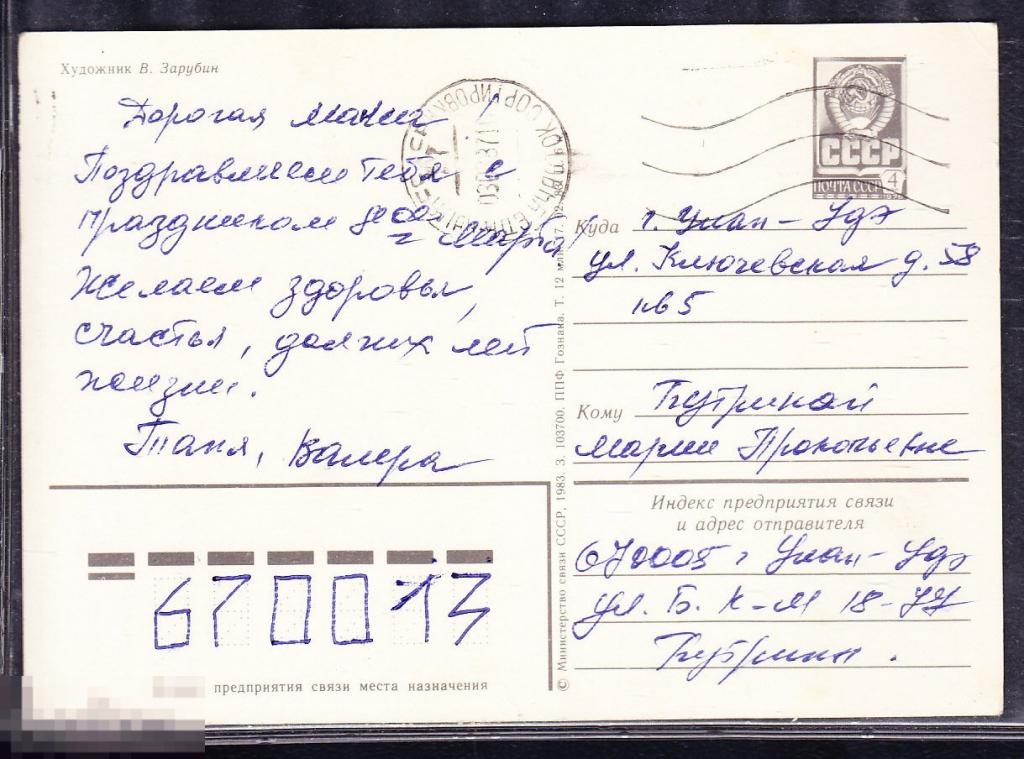 Художник В. Зарубин
Дорогая мама!
Поздравляем тебя с
праздником 8ое Марта!
Желаем здоровья,
счастья, долгих лет
жизни.
Таня, Валера
ПОЧТА СССР
СССР
4
Куда г. Улан-Удэ
ул. Ключевская д. 58
кв 5
Кому
Марии Прокопьевне
Индекс предприятия связи
и адрес отправителя
670005 г Улан-Удэ
ул. Б. К-М 18-
670013
предприятия связи места назначения
© Министерство связи СССР, 1983. З. 103700. ППФ Гознака. Т. 12 млн.